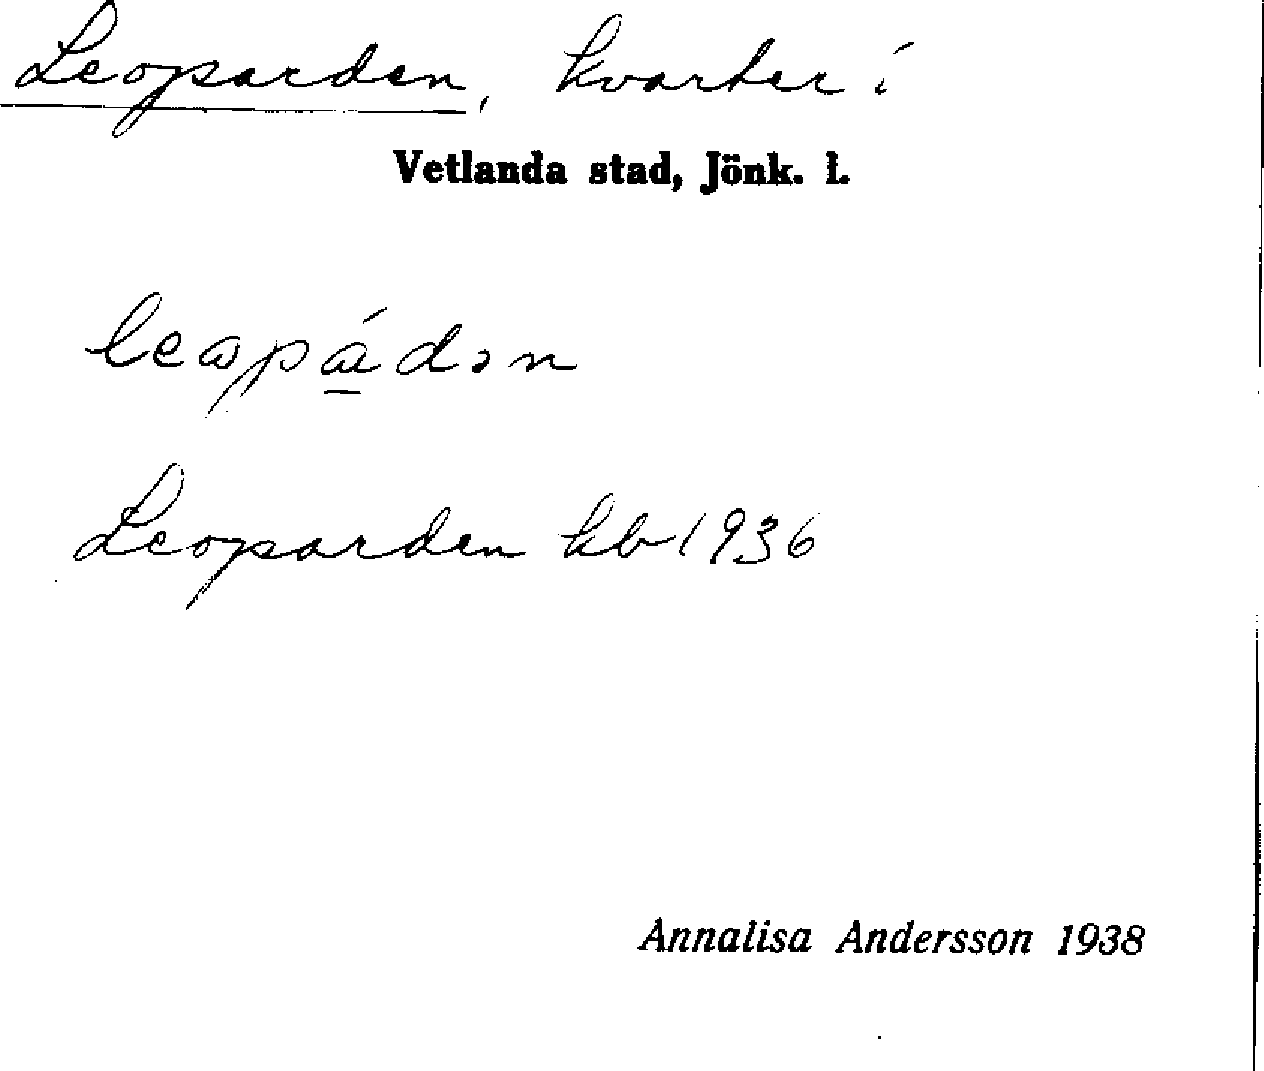 Leoparden, kvarter i
Vetlanda stad, Jönk. l.
Leoparden kb 1936
Annalisa Andersson 1938